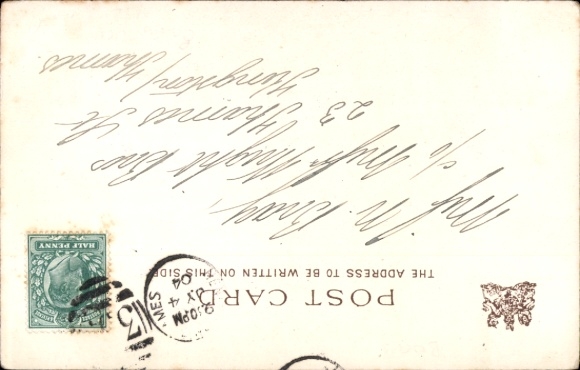 POST CARD
THE ADDRESS TO BE WRITTEN ON THIS SIDE
HALF PENNY
MES
30PM
JY 4
04
3
Bray
c/o Wright Bros
23 Thames St
Kingston/Thames